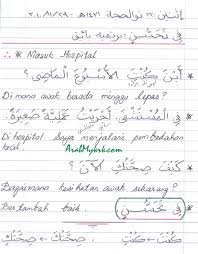 إثنين ٢٢ ذوالحجة ١٤٣١هـ - ٢٠١٠/١١/٢٩
فِي تَحَسُّنٍ
∴ * Masuk Hospital
أَيْنَ كُنْتَ الأُسْبُوعَ الْمَاضِى؟
Di mana awak berada minggu lepas?
فِي الْمُسْتَشْفَى، أَجْرَيْتُ عَمَلِيَّةً صَغِيرَةً.
Di hospital. Saya menjalani pembedahan
kecil.
ArabMykrk.com
كَيْفَ صِحَّتُكَ الآنَ؟
Bagaimana kesihatan awak sekarang?
فِي تَحَسُّنٍ
Bertambah baik.
كُنْتَ ← كُنْتِ صِحَّتُكَ ← صِحَّتُكِ